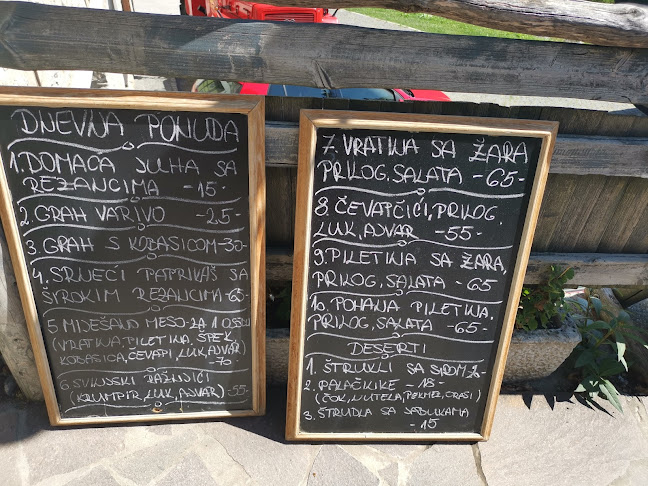 DNEVNA PONUDA
1. DOMAĆA JUHA SA
REZANCIMA -15-
2. GRAH VARIVO -25-
3 GRAH S KOBASICOM-30-
4. SRNEĆI PAPRIKAŠ SA
ŠIROKIM REZANCIMA-65-
5 MIJEŠANO MESO-ZA 1 OSOBU
(VRATINA, PILETINA, ŠPEK,
KOBASICA, ČEVAPI, LUK, AJVAR)
-70-
6. SVINJSKI RAŽNJIĆI
(KRUMPIR, LUK, AJVAR) -55-
7. VRATINA SA ŽARA
PRILOG, SALATA -65-
8. ČEVAPČIĆI, PRILOG,
LUK, AJVAR -55-
9. PILETINA SA ŽARA,
PRILOG, SALATA -65
10. POHANA PILETINA,
PRILOG, SALATA -65-
DESERTI
1. ŠTRUKLI SA SIROM
2. PALAČINKE -18-
(ČOK, NUTELA, PEKMEZ, ORASI)
3. ŠTRUDLA SA JABUKAMA
-15